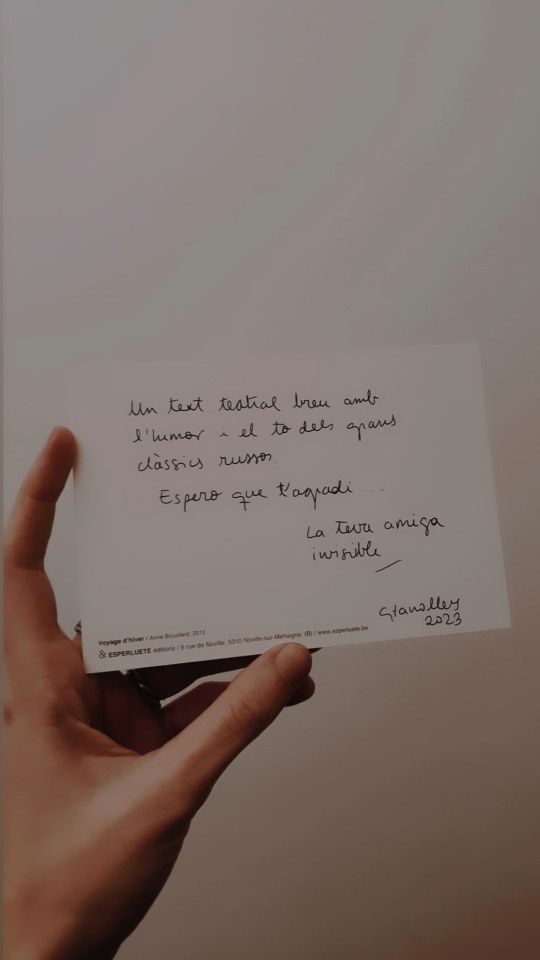 Un text teatral breu amb
l'humor i el to dels grans
clàssics russos.
Espero que t'agradi...
La teva amiga
invisible
Granollers
2023
Voyage d'hiver / Anne Brouillard, 2013
& ESPERLUETE éditions / 9 rue de Noville, 5310 Noville-sur-Mehaigne, (B) / www.esperluete.be